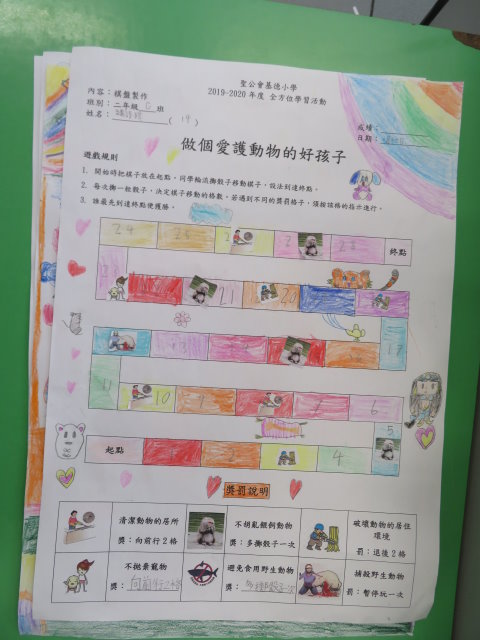 聖公會基德小學
2019-2020 年度 全方位學習活動
內容：棋盤製作
班別：二年級 C 班
姓名： (19)
成績：
日期：
做個愛護動物的好孩子
遊戲規則
1. 開始時把棋子放在起點，同學輪流擲骰子移動棋子，設法到達終點。
2. 每次擲一粒骰子，決定棋子移動的格數。若遇到不同的獎罰格子，須按該格的指示進行。
3. 誰最先到達終點便獲勝。
24 25 28 終點
21 20
17
11 10 9 7 6
5
起點 2 4
獎罰說明
清潔動物的居所
獎：向前行 2 格
不胡亂餵飼動物
獎：多擲骰子一次
破壞動物的居住環境
罰：退後 2 格
不拋棄寵物
獎：向前行二格
避免食用野生動物
獎：多擲骰子一次
捕殺野生動物
罰：暫停玩一次